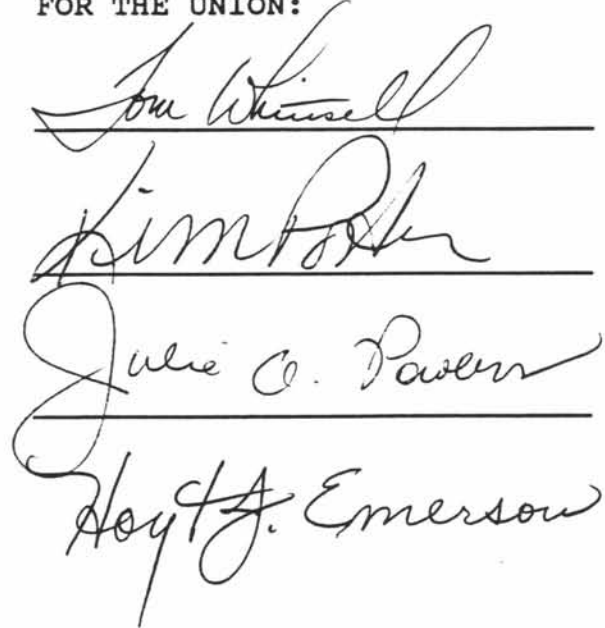 FOR THE UNION:
Tom
Kim Porter
Julie A. Powers
Hoyt J. Emerson